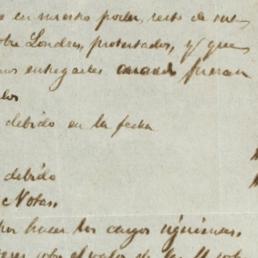 en nuestro poder, resto de sus
sobre Londres, protestados, y que
entregarles cuando fueran
debido en la fecha
debido
Notas.
hacer los cargos siguientes.
sobre el valor de las